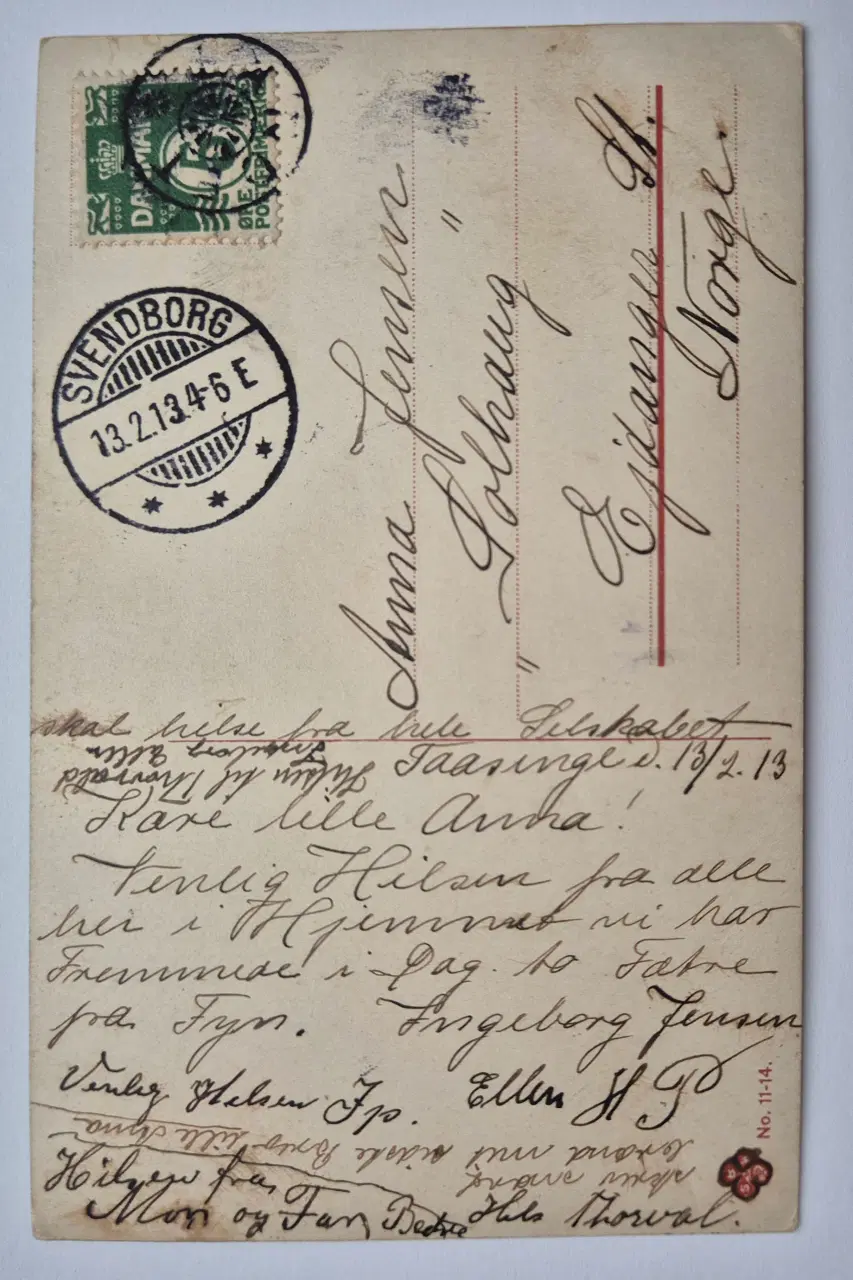 DANMARK
5
ØRE
POSTFRIM
SVENDBORG
13.2.13.4-6 E
Anna Jensen
" Solhaug "
Ejdanger St.
Norge.
skal hilse fra hele Selskabet
Hilsen til Thorvald
Ingeborg Ellen
Taasinge d. 13/2. 13
Kære lille Anna!
Venlig Hilsen fra alle
her i Hjemmet vi har
Fremmede i Dag. to Fætre
fra Fyn. Ingeborg Jensen
Venlig Hilsen Jp. Ellen H P
skriv snart
med sidste Brev lille Anna
Hilsen fra
Mor og Far, Bedre Hils Thorval.
No. 11-14.